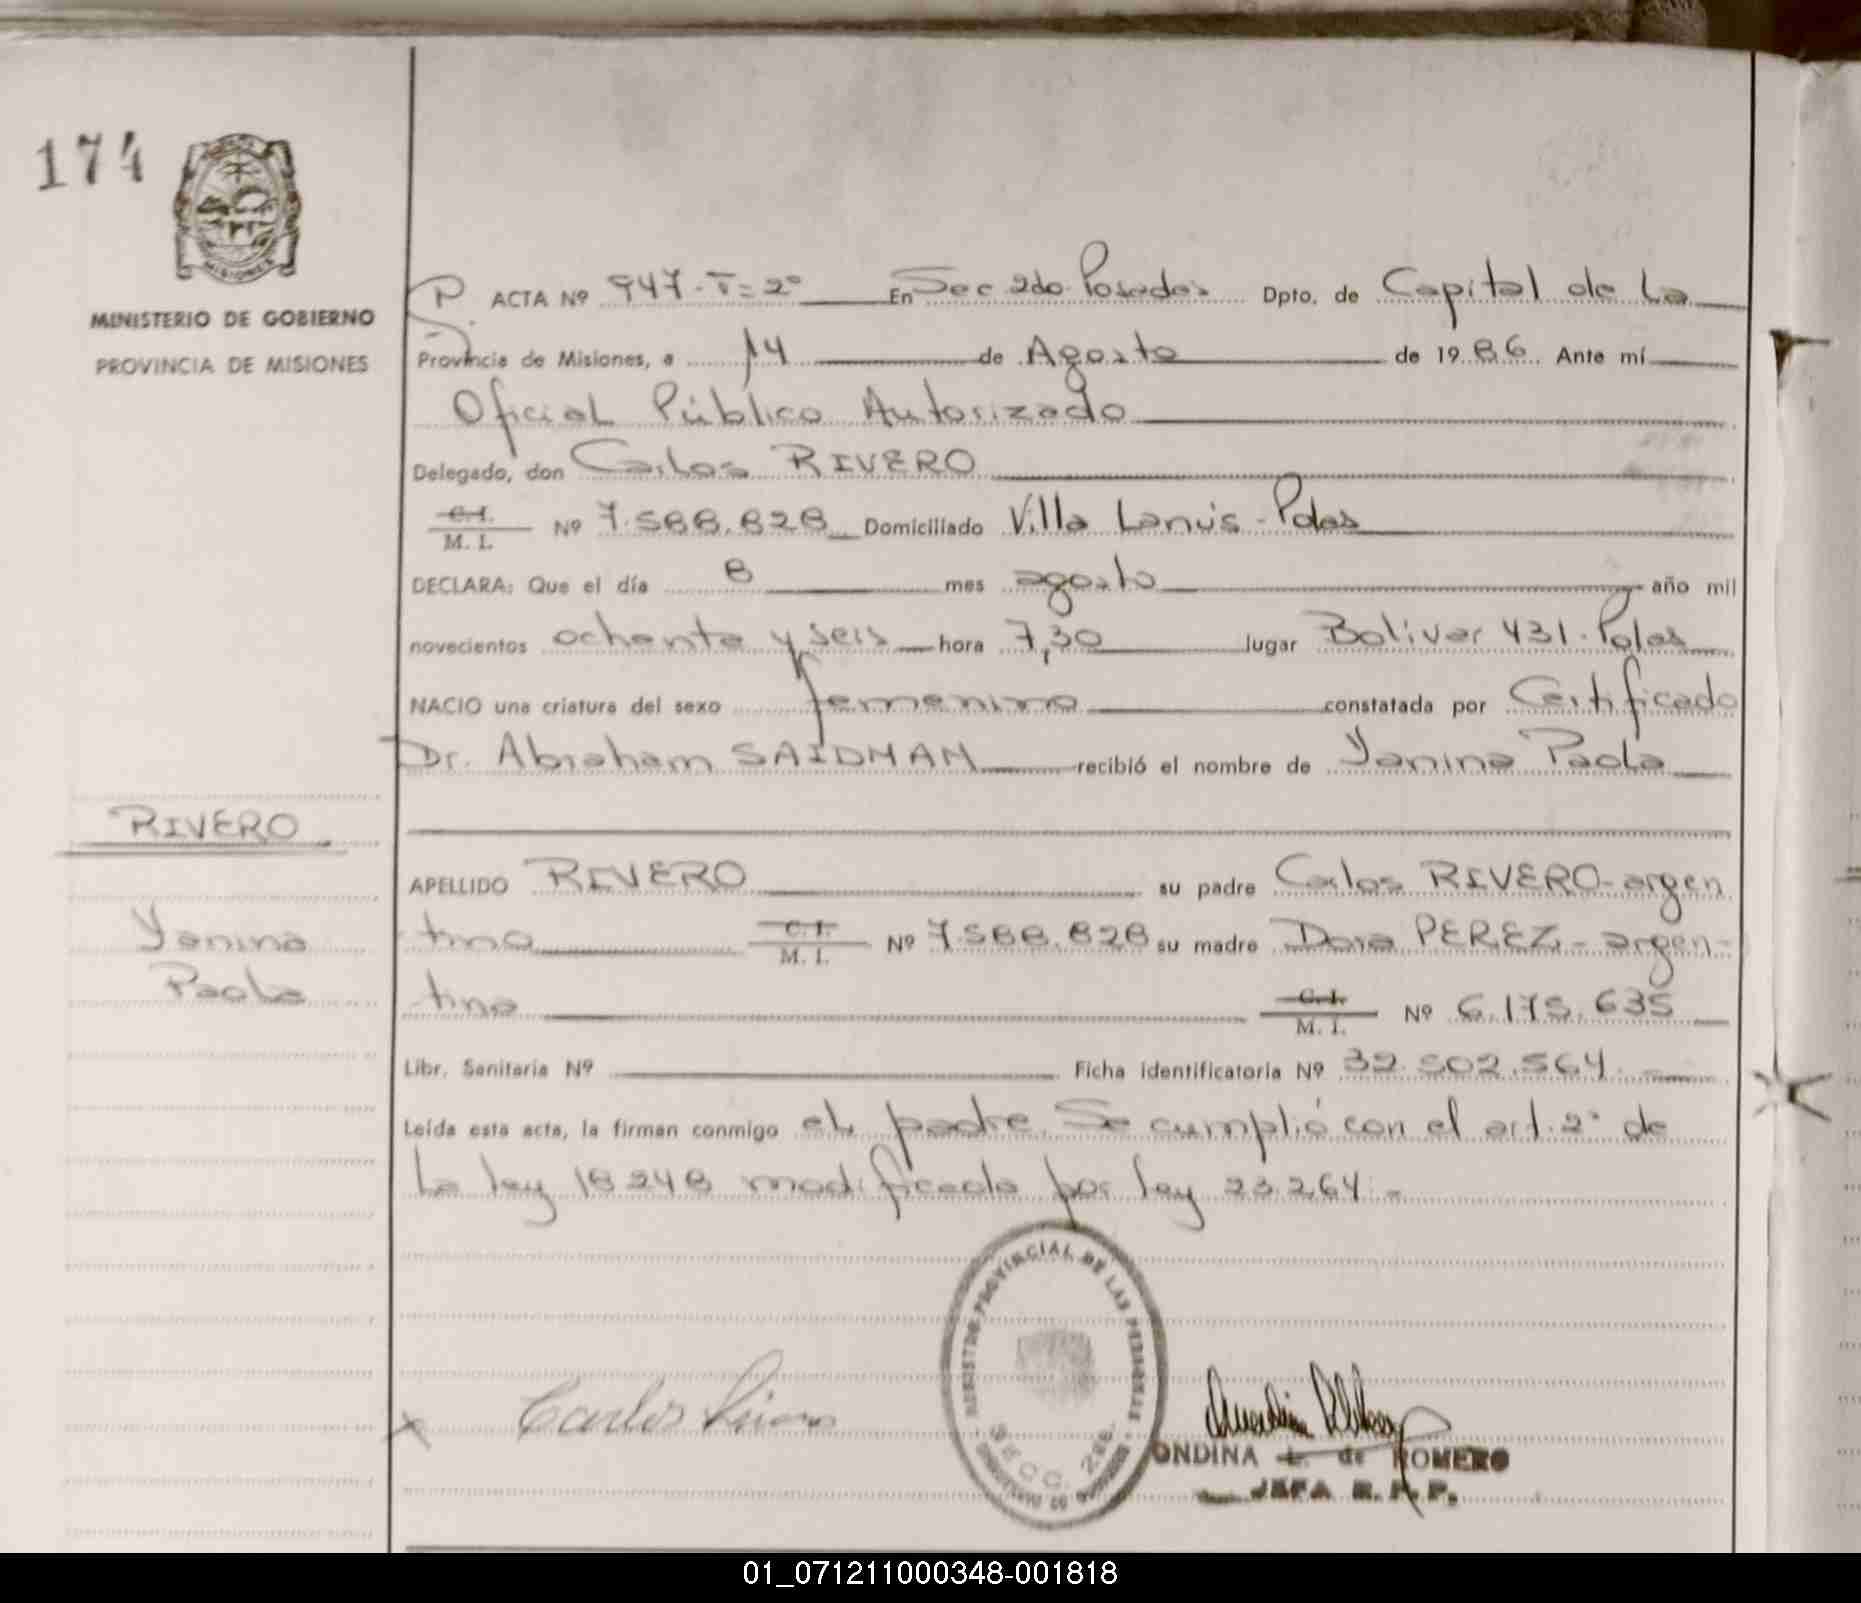 174
MISIONES
MINISTERIO DE GOBIERNO
PROVINCIA DE MISIONES
ACTA Nº 947-T=2º En Sec 2do. Posadas Dpto. de Capital de La
Provincia de Misiones, a 14 de Agosto de 1986 Ante mí
Oficial Público Autorizado
Delegado, don Carlos RIVERO
C.I. M. I. Nº 7.588.828 Domiciliado Villa Lanús - Pdas
DECLARA: Que el día 8 mes agosto año mil
novecientos ochenta y seis hora 7,30 lugar Bolivar 431. Pdas
NACIO una criatura del sexo femenino constatada por Certificado
Dr. Abraham SAIDMAN recibió el nombre de Yanina Paola
RIVERO
Yanina
Paola
APELLIDO RIVERO su padre Carlos RIVERO - argen
tino C.I. M. I. Nº 7.588.828 su madre Dora PEREZ - argen-
tina C.I. M. I. Nº 6.175.635
Libr. Sanitaria Nº Ficha identificatoria Nº 32.502.564.
Leída esta acta, la firman conmigo el padre. Se cumplió con el art. 2º de
La ley 18248 modificada por ley 23264.-
REGISTRO PROVINCIAL DE LAS PERSONAS
SECC. 2da.
Carlos Rivero
ONDINA L. de ROMERO
JEFA R. P. P.
01_071211000348-001818